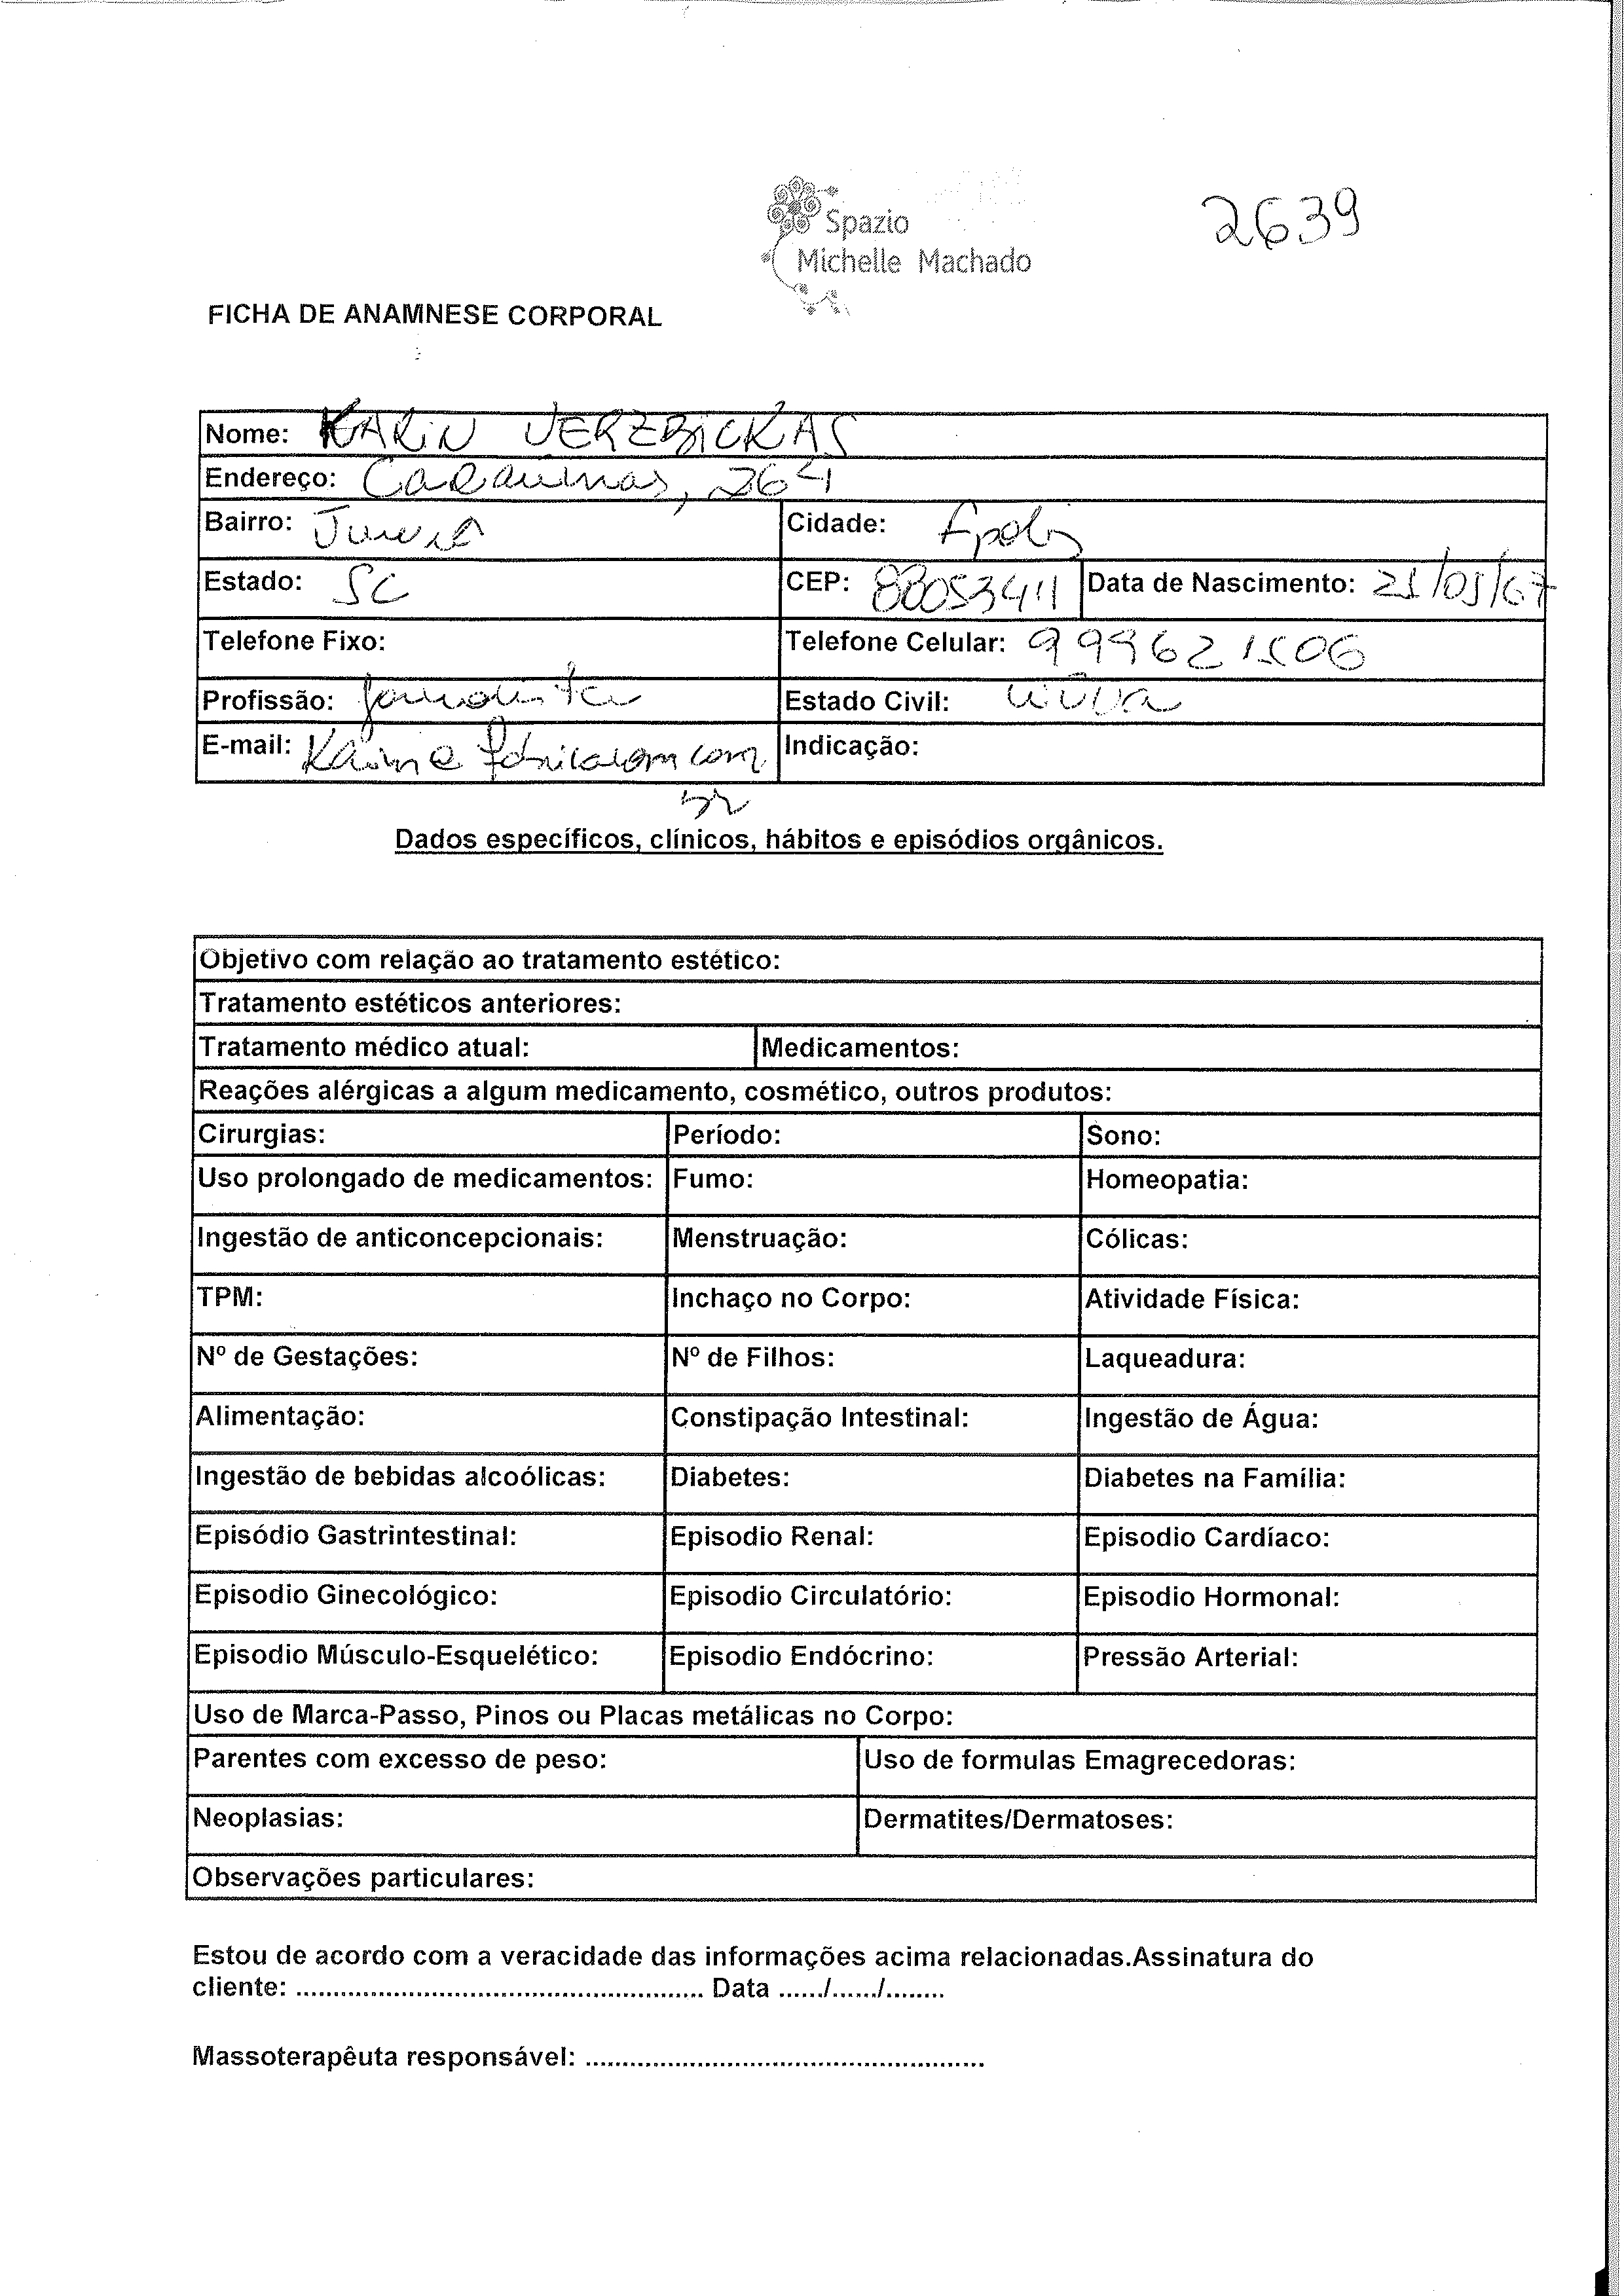 2639
Spazio
Michelle Machado
FICHA DE ANAMNESE CORPORAL
Nome: KARIN VERZBICKAS
Endereço: 264
Bairro: Jurerê Cidade: Fpolis
Estado: SC CEP: 88053411 Data de Nascimento: 21/05/67
Telefone Fixo: Telefone Celular: 999621506
Profissão: jornalista Estado Civil: viúva
E-mail: Indicação:
Dados específicos, clínicos, hábitos e episódios orgânicos.
Objetivo com relação ao tratamento estético:
Tratamento estéticos anteriores:
Tratamento médico atual: Medicamentos:
Reações alérgicas a algum medicamento, cosmético, outros produtos:
Cirurgias: Período: Sono:
Uso prolongado de medicamentos: Fumo: Homeopatia:
Ingestão de anticoncepcionais: Menstruação: Cólicas:
TPM: Inchaço no Corpo: Atividade Física:
Nº de Gestações: Nº de Filhos: Laqueadura:
Alimentação: Constipação Intestinal: Ingestão de Água:
Ingestão de bebidas alcoólicas: Diabetes: Diabetes na Família:
Episódio Gastrintestinal: Episodio Renal: Episodio Cardíaco:
Episodio Ginecológico: Episodio Circulatório: Episodio Hormonal:
Episodio Músculo-Esquelético: Episodio Endócrino: Pressão Arterial:
Uso de Marca-Passo, Pinos ou Placas metálicas no Corpo:
Parentes com excesso de peso: Uso de formulas Emagrecedoras:
Neoplasias: Dermatites/Dermatoses:
Observações particulares:
Estou de acordo com a veracidade das informações acima relacionadas.Assinatura do
cliente: ...................................................... Data ....../....../........
Massoterapêuta responsável: .....................................................